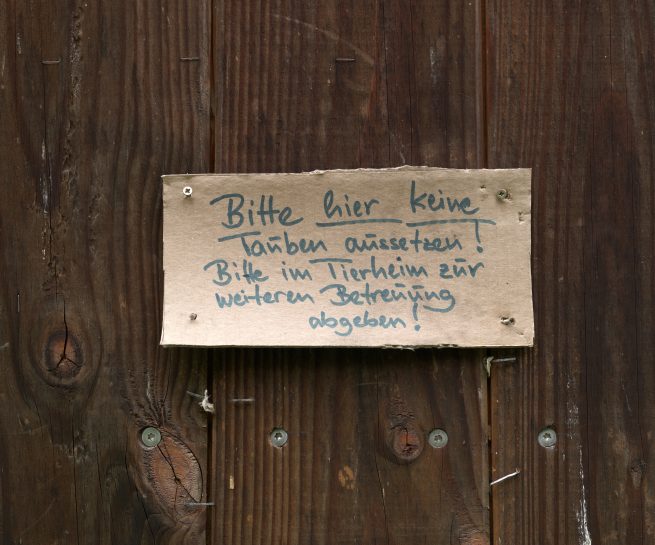 Bitte hier keine
Tauben aussetzen!
Bitte im Tierheim zur
weiteren Betreuung
abgeben!